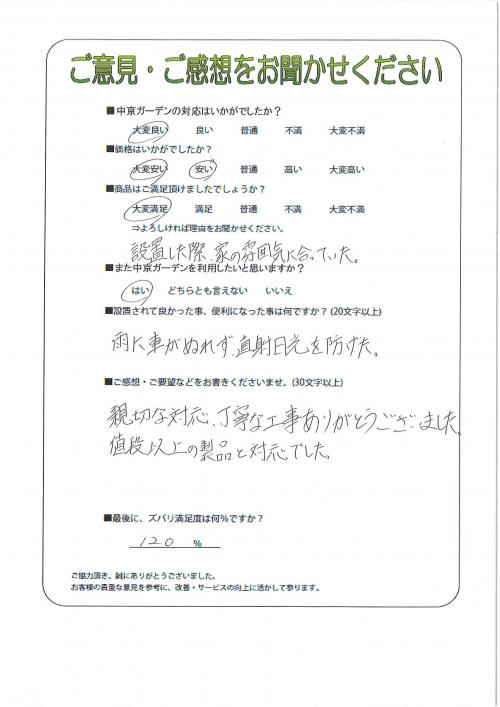 ご意見・ご感想をお聞かせください
■中京ガーデンの対応はいかがでしたか？
大変良い 良い 普通 不満 大変不満
■価格はいかがでしたか？
大変安い 安い 普通 高い 大変高い
■商品はご満足頂けましたでしょうか？
大変満足 満足 普通 不満 大変不満
⇒よろしければ理由をお聞かせください。
設置した際、家の雰囲気に合っていた。
■また中京ガーデンを利用したいと思いますか？
はい どちらとも言えない いいえ
■設置されて良かった事、便利になった事は何ですか？(20文字以上)
雨に車がぬれず、直射日光を防げた。
■ご感想・ご要望などをお書きくださいませ。(30文字以上)
親切な対応、丁寧な工事ありがとうございました。
値段以上の製品と対応でした。
■最後に、ズバリ満足度は何%ですか？
120 %
ご協力頂き、誠にありがとうございました。
お客様の貴重な意見を参考に、改善・サービスの向上に活かして参ります。